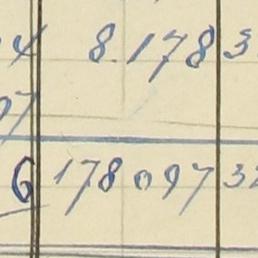 4 8.178 3
97
6 178097 32